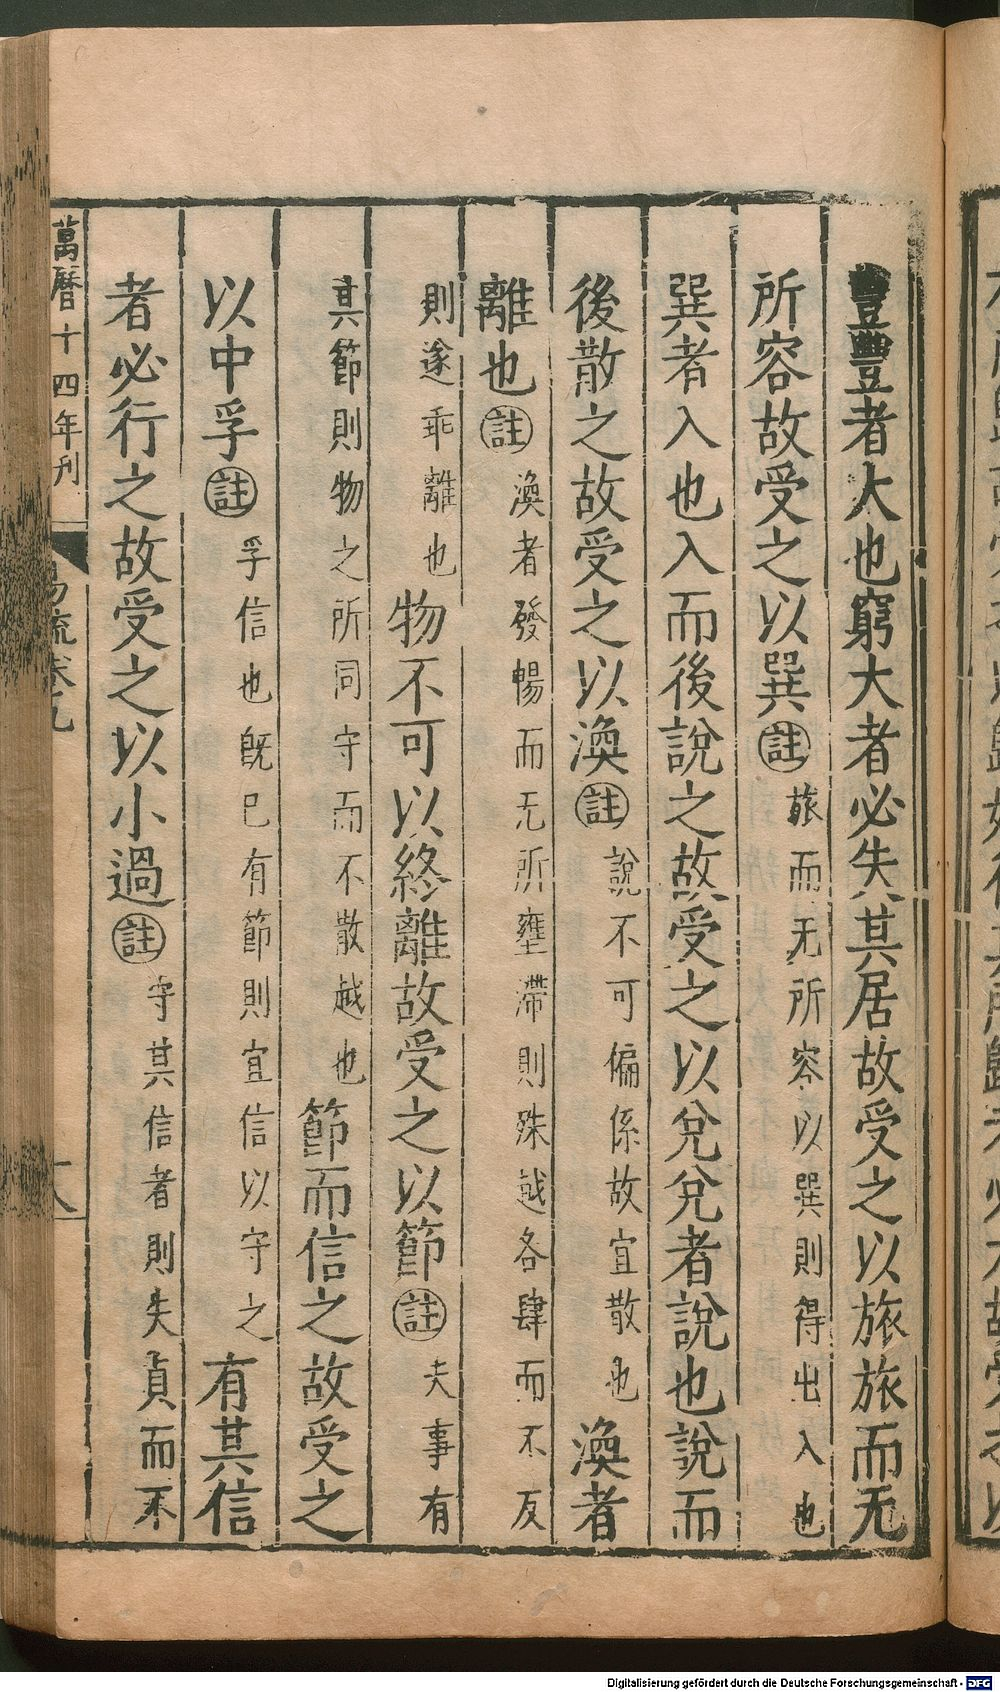 豐豐者大也窮大者必失其居故受之以旅旅而无
所容故受之以巽註旅而无所容以巽則得出入也
巽者入也入而後說之故受之以兌兌者說也說而
後散之故受之以渙註說不可偏係故宜散也渙者
離也註渙者發暢而无所壅滯則殊越各肆而不反
則遂乖離也物不可以終離故受之以節註夫事有
其節則物之所同守而不散越也節而信之故受之
以中孚註孚信也旣已有節則宜信以守之有其信
者必行之故受之以小過註守其信者則失貞而不
萬曆十四年刋
易疏卷九
Digitalisierung gefördert durch die Deutsche Forschungsgemeinschaft - DFG